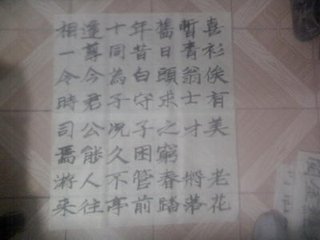 相逢十年舊暫喜
一尊同昔日青衫
令今為白頭翁俟
時君子守求士有
司公況子之才美
焉能久困窮
游人不管春將老
来往亭前踏落花